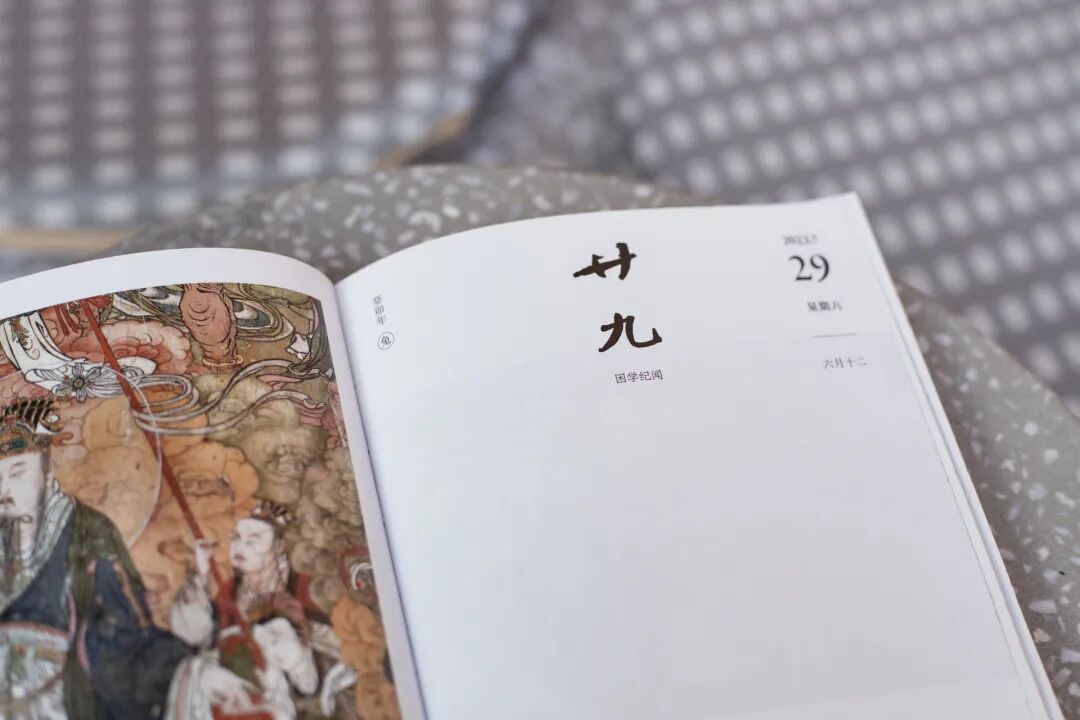 癸卯年 兔
廿九
国学纪闻
2023.7
29
星期六
六月十二